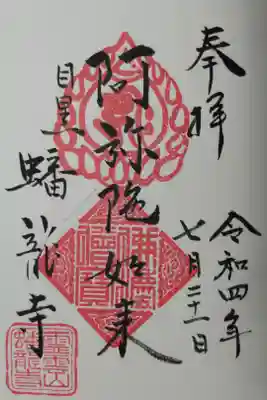 奉拝
令和四年
七月二十一日
阿弥陀如来
目黒
蟠龍寺
霊雲山
蟠龍寺